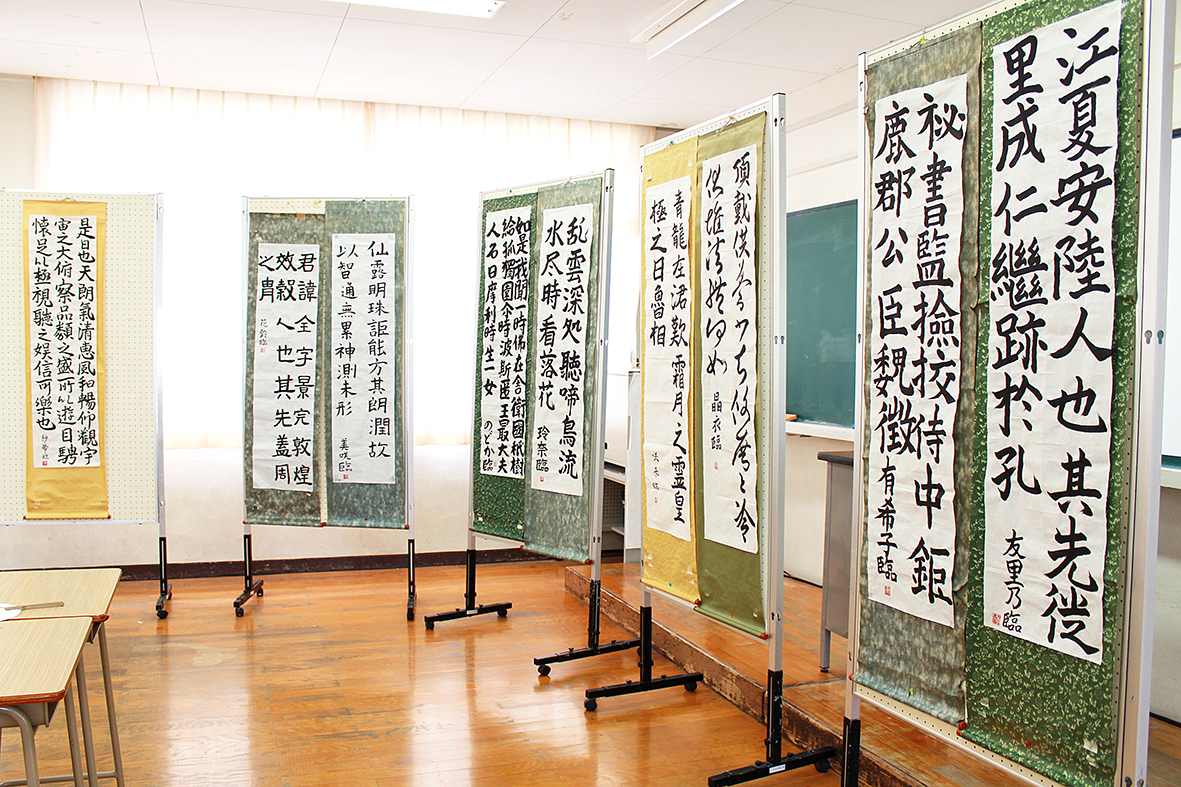 江夏安陸人也其先從
里成仁繼跡於孔
友里乃臨
秘書監撿挍侍中鉅
鹿郡公臣魏徵
有希子臨
晶衣臨
青龍左涒歎霜月之靈皇
極之日魯相
乱雲深処聴啼鳥流
水尽時看落花
玲奈臨
如是我聞一時佛在舎衛國祇樹
給孤獨園尒時波斯匿王最大夫
人名曰摩利時生一女
のどか臨
仙露明珠詎能方其朗潤故
以智通無累神測未形
美咲臨
君諱全字景完敦煌
效穀人也其先蓋周
之胄
花鈴臨
是日也天朗氣清惠風和暢仰觀宇
宙之大俯察品類之盛所以遊目騁
懷足以極視聽之娯信可樂也